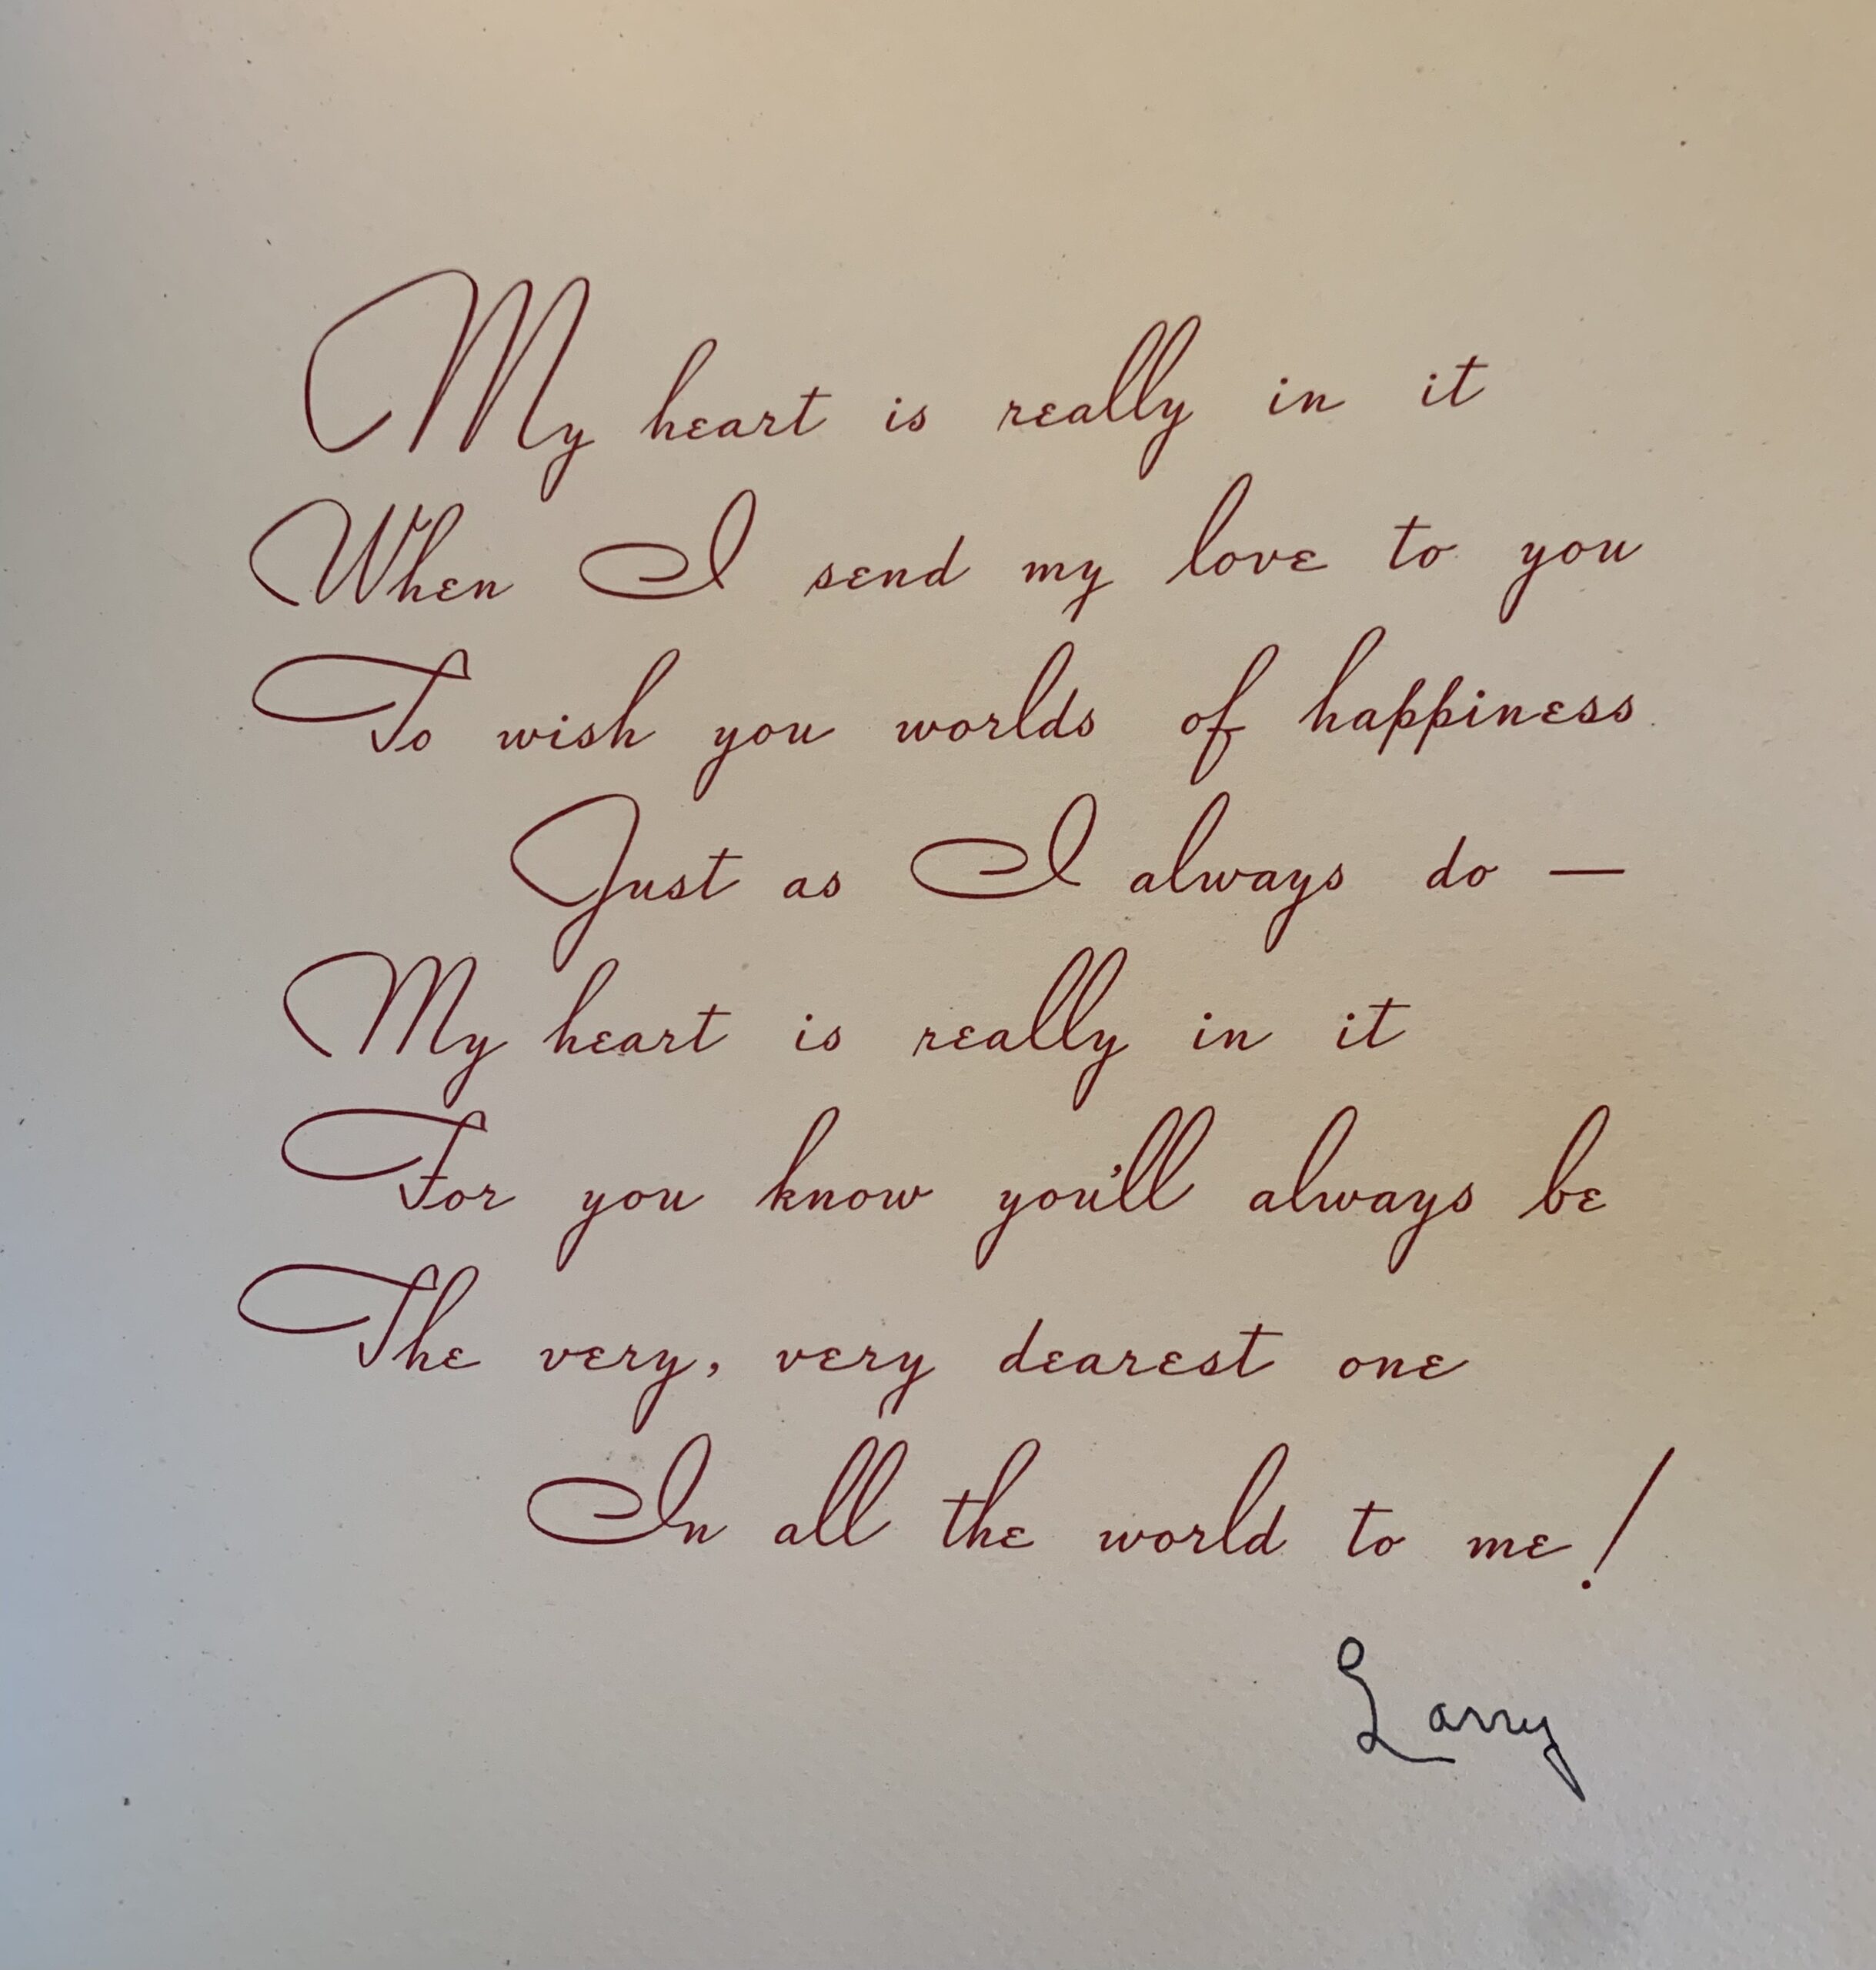 My heart is really in it
When I send my love to you
To wish you worlds of happiness
Just as I always do —
My heart is really in it
For you know you'll always be
The very, very dearest one
In all the world to me!
Larry